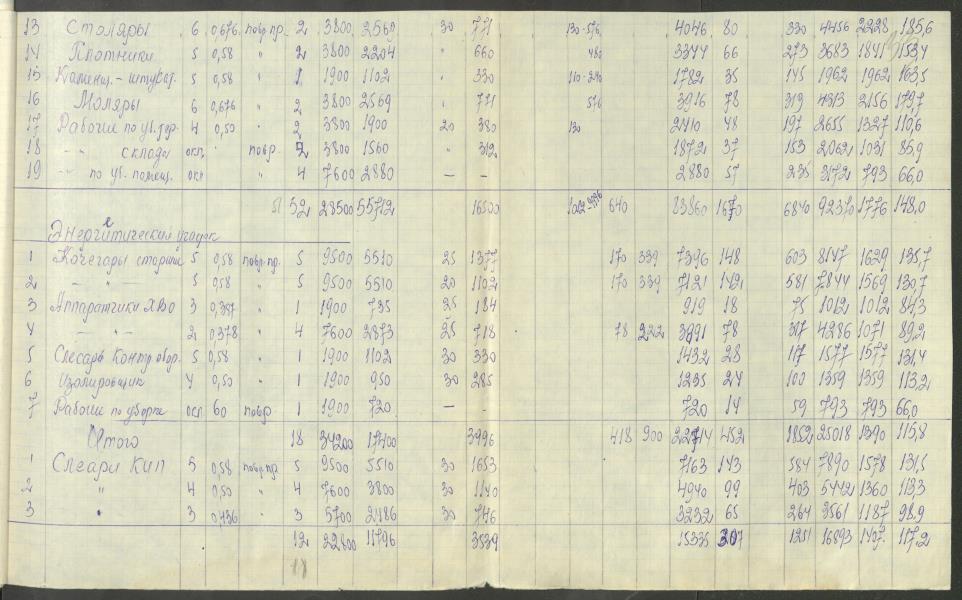 13 Столяры 6 0,676 повр.пр. 2 3800 2569 30 771 130-576 4046 80 330 4456 2228 185,6
14 Плотники 5 0,58 " 2 3800 2204 " 660 480 3344 66 273 3683 1841 153,4
15 Каменщ.-штукат. 5 0,58 " 1 1900 1102 " 330 110-240 1782 35 145 1962 1962 163,5
16 Моляры 6 0,676 " 2 3800 2569 " 771 576 3916 78 319 4313 2156 179,7
17 Рабочие по уб. тер. 4 0,50 " 2 3800 1900 20 380 130 2410 48 197 2655 1327 110,6
18 -"- склада окл. повр. 2 3800 1560 " 312 1872 37 153 2062 1031 85,9
19 -"- по уб. помещ. окл " 4 7600 2880 — — 2880 57 235 3172 793 66,0
51 52 28500 55712 16500 640 83860 1670 6840 92370 1776 148,0
Энергетический участок
1 Кочегары старший 5 0,58 повр.пр. 5 9500 5510 25 1377 170 339 7396 148 603 8147 1629 135,7
2 -"- 5 0,58 " 5 9500 5510 20 1102 170 339 7121 142 581 7844 1569 130,7
3 Аппаратчики ХВО 3 0,387 " 1 1900 735 25 184 919 18 75 1012 1012 84,3
4 -"- 2 0,378 " 4 7600 2873 25 718 78 222 3891 78 317 4286 1071 89,2
5 Слесарь контр. обор. 5 0,58 " 1 1900 1102 30 330 1432 28 117 1577 1577 131,4
6 Изолировщик 4 0,50 " 1 1900 950 30 285 1235 24 100 1359 1359 113,2
7 Рабочие по уборке осл 60 повр. 1 1900 720 — — 720 14 59 793 793 66,0
Итого 18 34200 17400 3996 418 900 22714 452 1852 25018 1390 115,8
1 Слесари КИП 5 0,58 повр.пр. 5 9500 5510 30 1653 7163 143 584 7890 1578 131,5
2 " 4 0,50 " 4 7600 3800 30 1140 4940 99 403 5442 1360 113,3
3 " 3 0,436 " 3 5700 2486 30 746 3232 65 264 3561 1187 98,9
12 22800 11796 3539 15335 307 1251 16893 1407 117,2